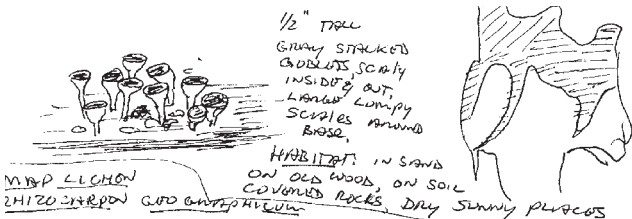 1/2" TALL
GRAY STALKED
GOBLETS, SCALY
INSIDE & OUT,
LARGE LUMPY
SCALES AROUND
BASE,
HABITAT: IN SAND
ON OLD WOOD, ON SOIL
COVERED ROCKS, DRY SUNNY PLACES
MAP LICHON
RHIZOCARPON GEOGRAPHICUM